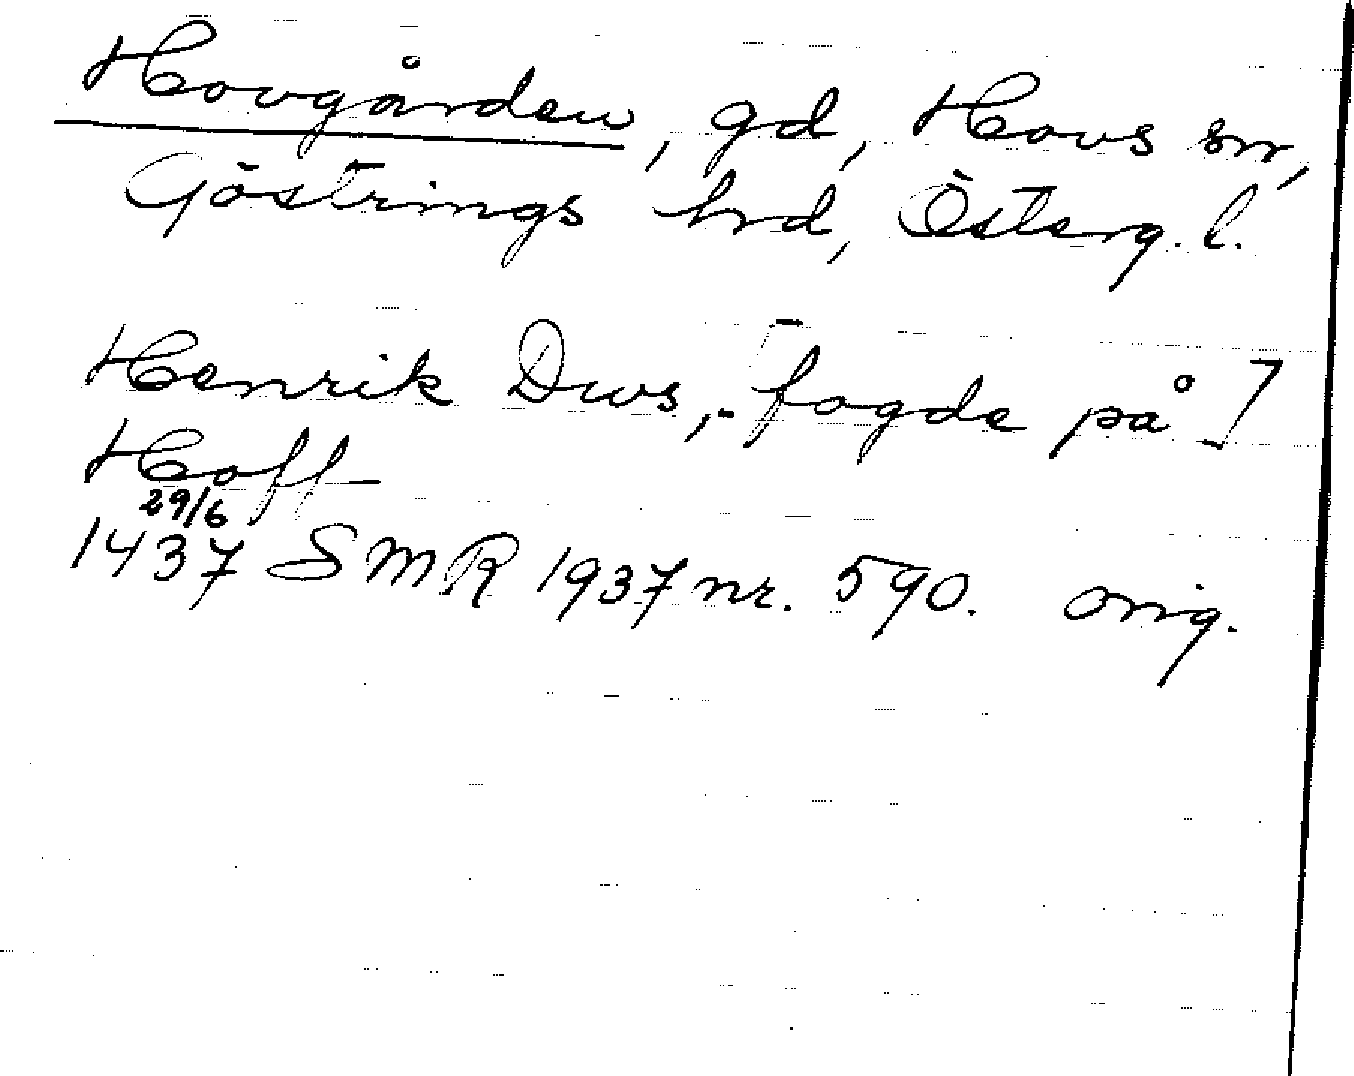 Hovgården, gd, Hovs sn,
Göstrings hrd, Österg. l.
Henrik Dws, [fogde på]
Hoff
29/6
1437 SMR 1937 nr. 590. orig.